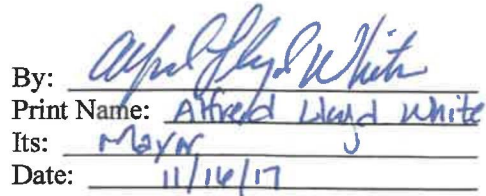 By: Alfred Lloyd White
Print Name: Alfred Lloyd White
Its: Mayor
Date: 11/16/17